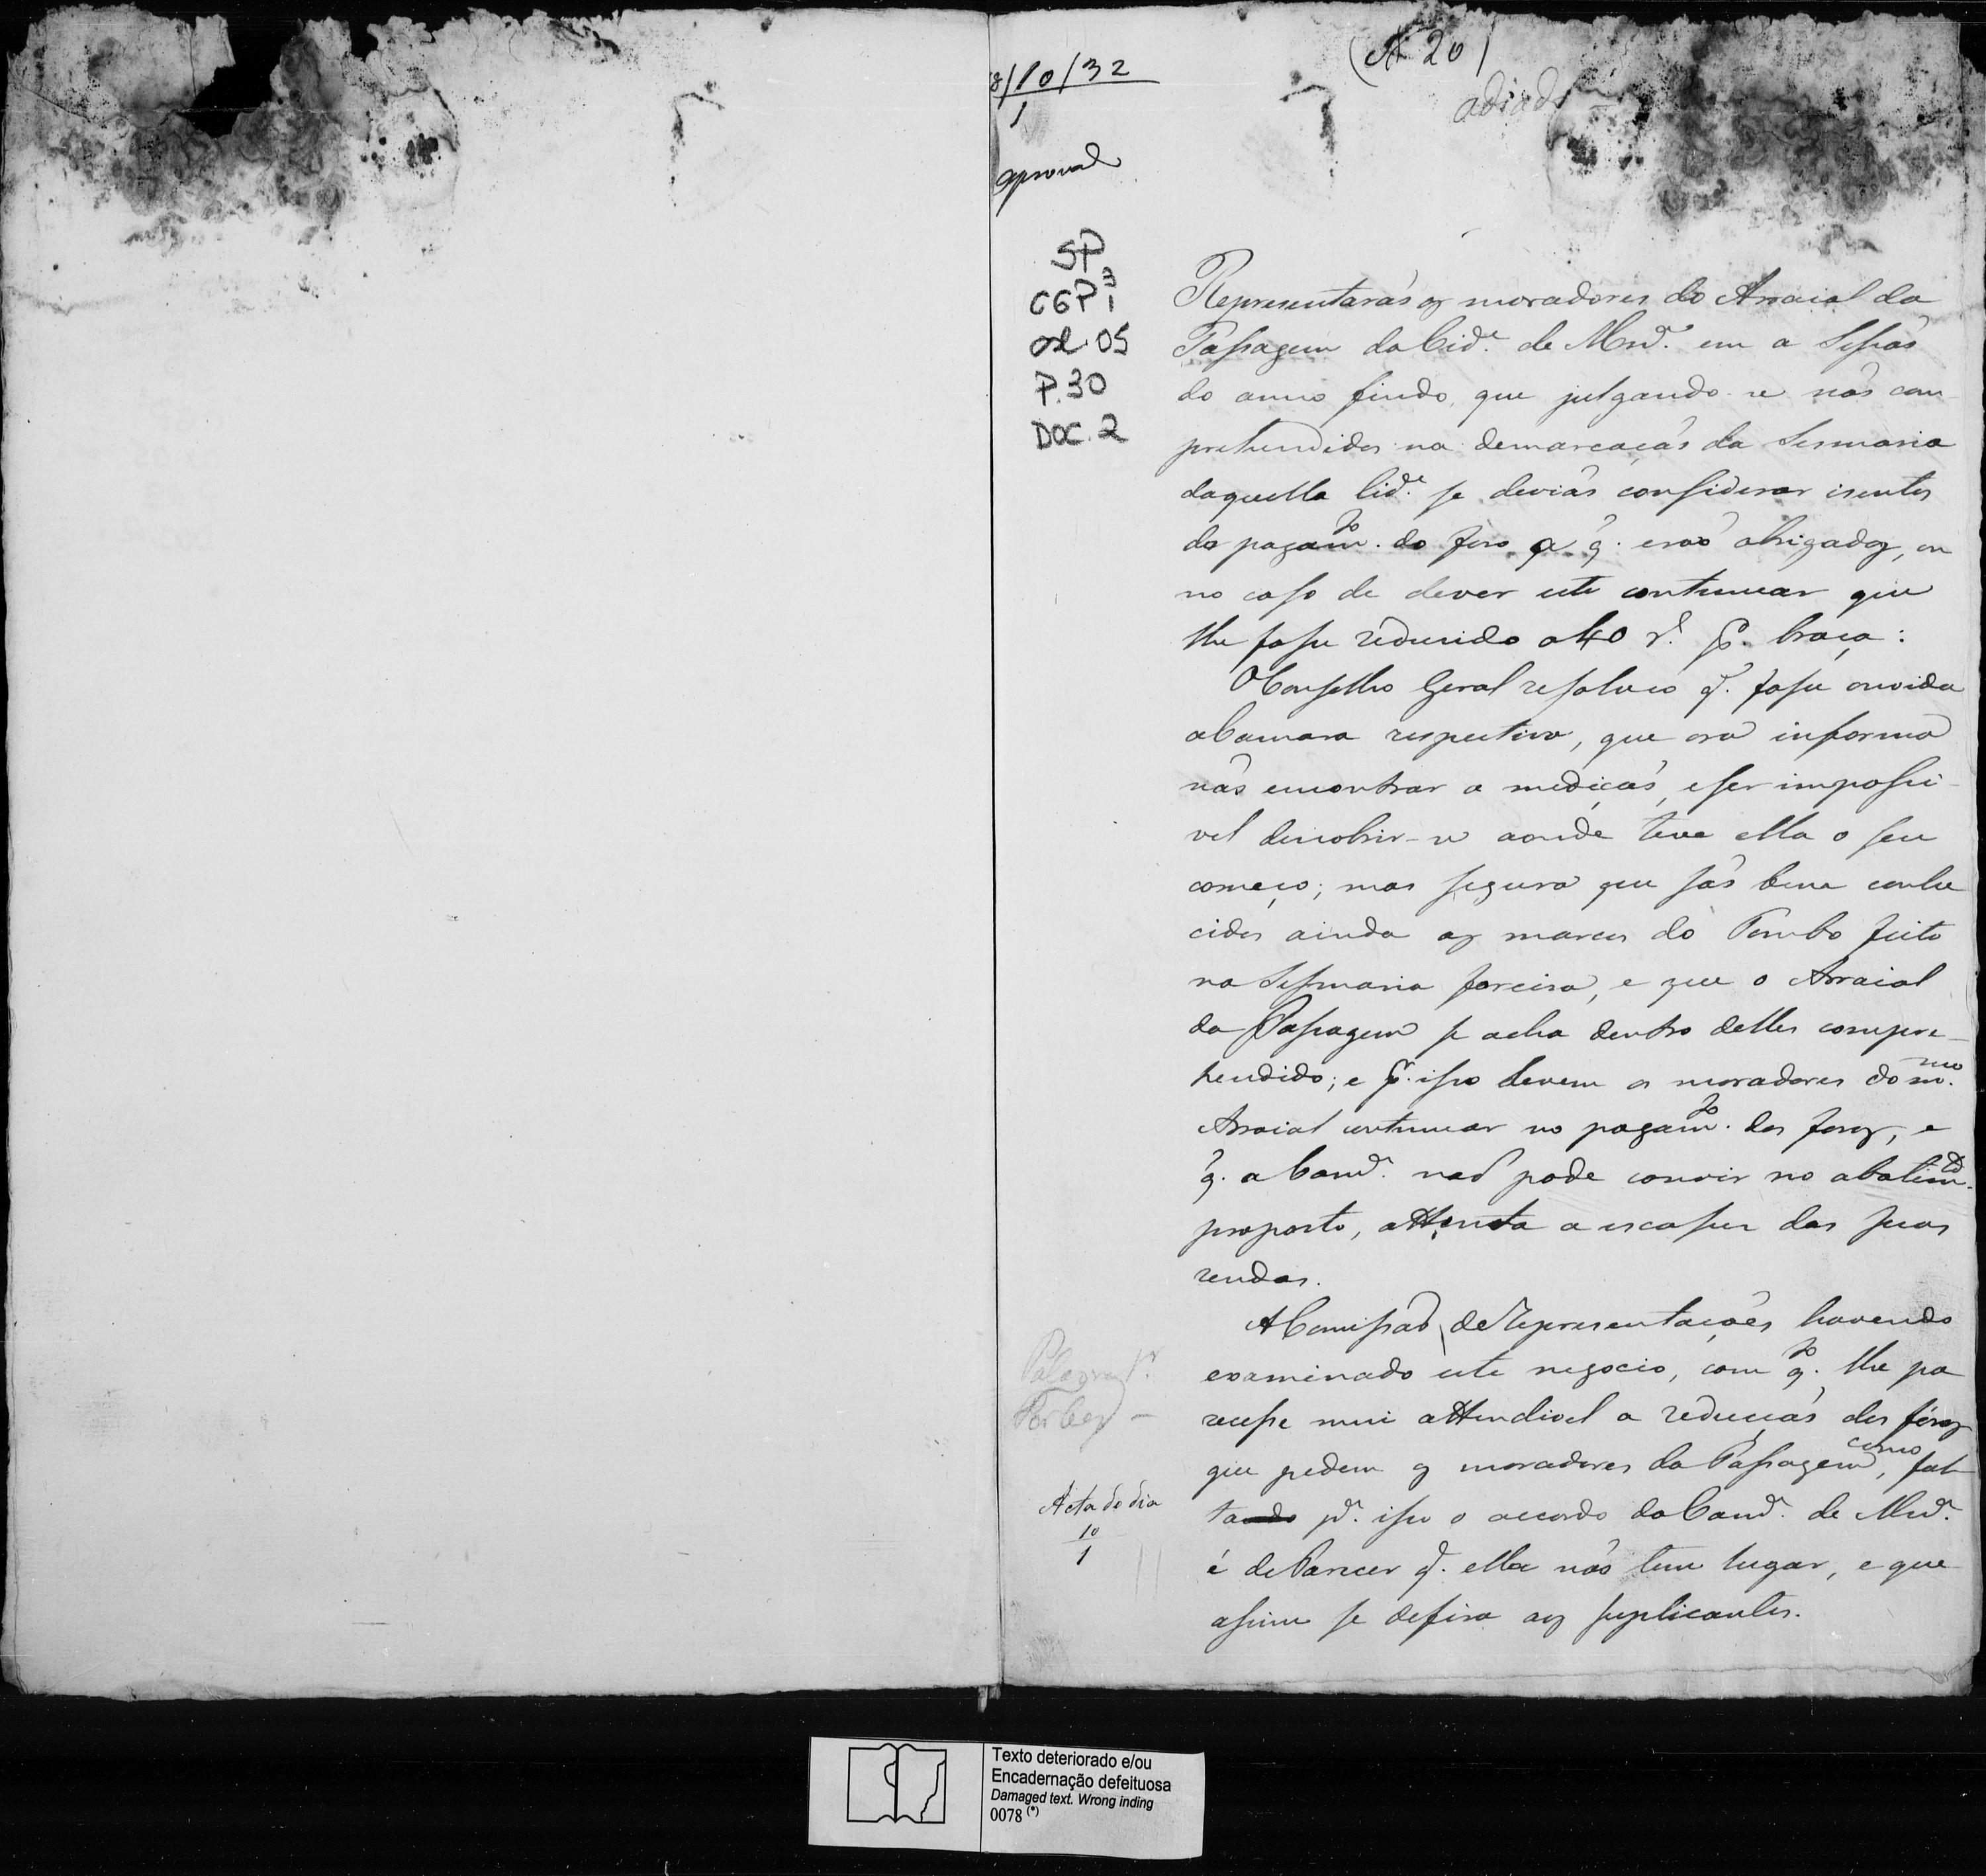 (A 20)
adiado
18/10/32
1
aprovad
SP
CGP 3
1
cx. 05
P. 30
DOC. 2
Representarão os moradores do Arraial da
Passagem da Cid.e de Mar.a em a Sessão
do anno findo, que julgando-se não com
prehendidos na demarcação da Sesmaria
daquella Cid.e se devião considerar isentos
do pagam.to do foro a q. erão obrigados, ou
no caso de dever este continuar que
lhe fosse redusido a 40 r.s p.r braça:
O Conselho Geral resolveo q. fosse ouvida
a Camara respectiva, que ora informa
não encontrar a medição, e ser impossi-
vel descobrir-se aonde teve ella o seu
começo; mas segura que são bem conhe
cidos ainda os marcos do Tombo feito
na Sesmaria foreira, e que o Arraial
da Passagem se acha dentro delles compre-
hendido; e p.r isso devem os moradores do m.mo
Arraial continuar no pagam.to dos foros, e
q. a Cam.a não pode convir no abatim.to
proposto, attenta a escassez das suas
rendas.
A Comissão de Representações havendo
examinado este negocio, com q.to lhe pa
recesse mui attendivel a redução dos fóros
que pedem os moradores da Passagem, como fal
tando p.a isso o accordo da Cam.a de Mar.a
é de Parecer q. ella não tem lugar, e que
assim se defira aos suplicantes.
Acta do dia
10
1
Texto deteriorado e/ou
Encadernação defeituosa
Damaged text. Wrong inding
0078 (*)